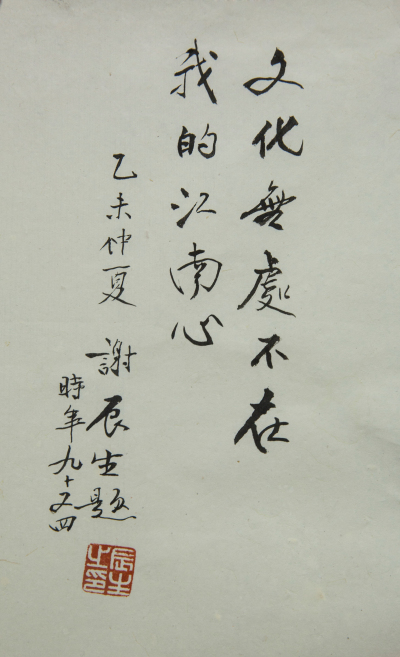 文化無處不在
我的江南心
乙未仲夏 謝辰生題
時年九十又四
辰生之印